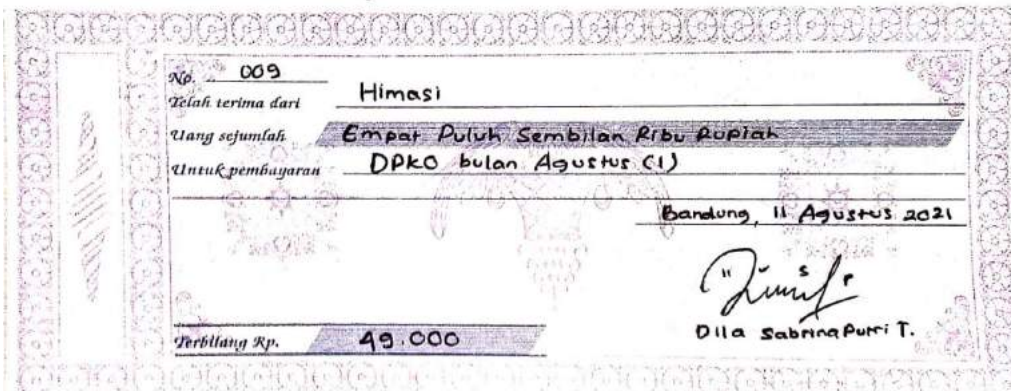 No. 009
Telah terima dari Himasi
Uang sejumlah Empat Puluh Sembilan Ribu Rupiah
Untuk pembayaran DPKO bulan Agustus (1)
Bandung, 11 Agustus 2021
Dila Sabrina Putri T.
Terbilang Rp. 49.000